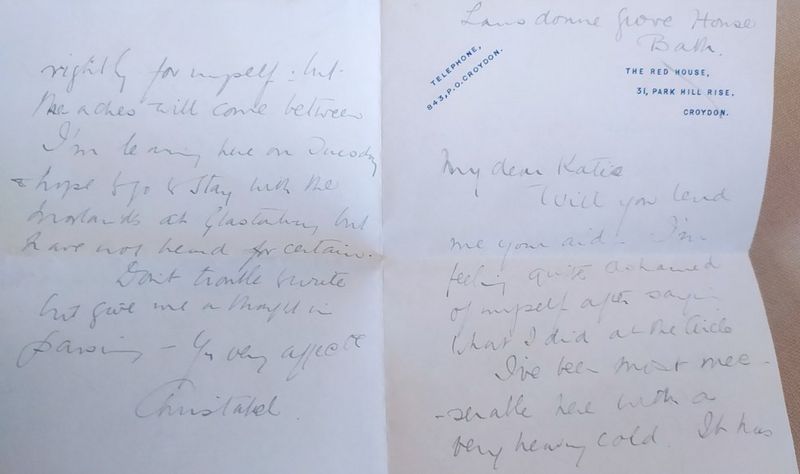 Lansdowne Grove House
Bath.
TELEPHONE,
843, P.O. CROYDON.
THE RED HOUSE,
31, PARK HILL RISE,
CROYDON.
My dear Katie
Will you lend
me your aid - I'm
feeling quite ashamed
of myself after saying
what I did at the Circle
I've been most mee-
-serable here with a
very heavy cold. It has
rightly for myself: but
the aches will come between
I'm leaving here on Tuesday
& hope to go & stay with the
at Glastonbury but
have not heard for certain.
Don't trouble to write
but give me a thought in
passing - Yr very affecte
Christabel.